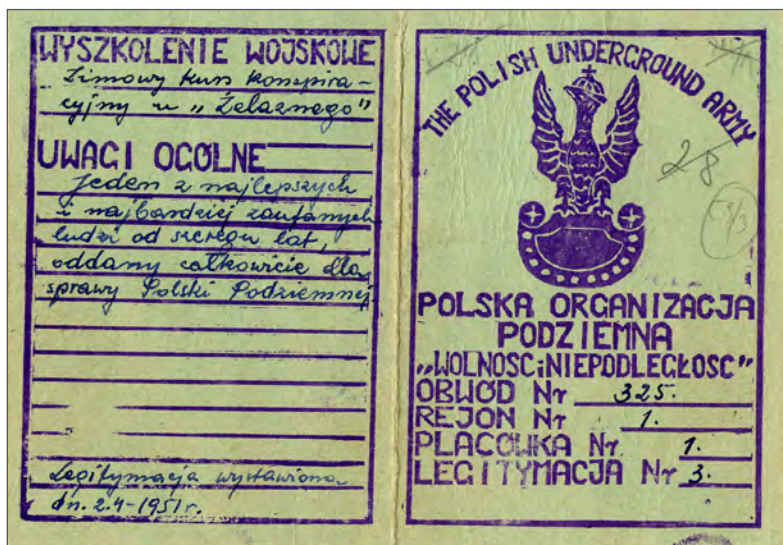 WYSZKOLENIE WOJSKOWE
Zimowy kurs konspira-
cyjny u „Żelaznego”
UWAGI OGÓLNE
Jeden z najlepszych
i najbardziej zaufanych
ludzi od szeregu lat,
oddany całkowicie dla
sprawy Polski Podziemnej
Legitymacja wystawiona
dn. 2.4-1951 r.
THE POLISH UNDERGROUND ARMY
28
POLSKA ORGANIZACJA
PODZIEMNA
„WOLNOSC i NIEPODLEGŁOSC”
OBWÓD Nr 325.
REJON Nr 1.
PLACÓWKA Nr 1.
LEGITYMACJA Nr 3.